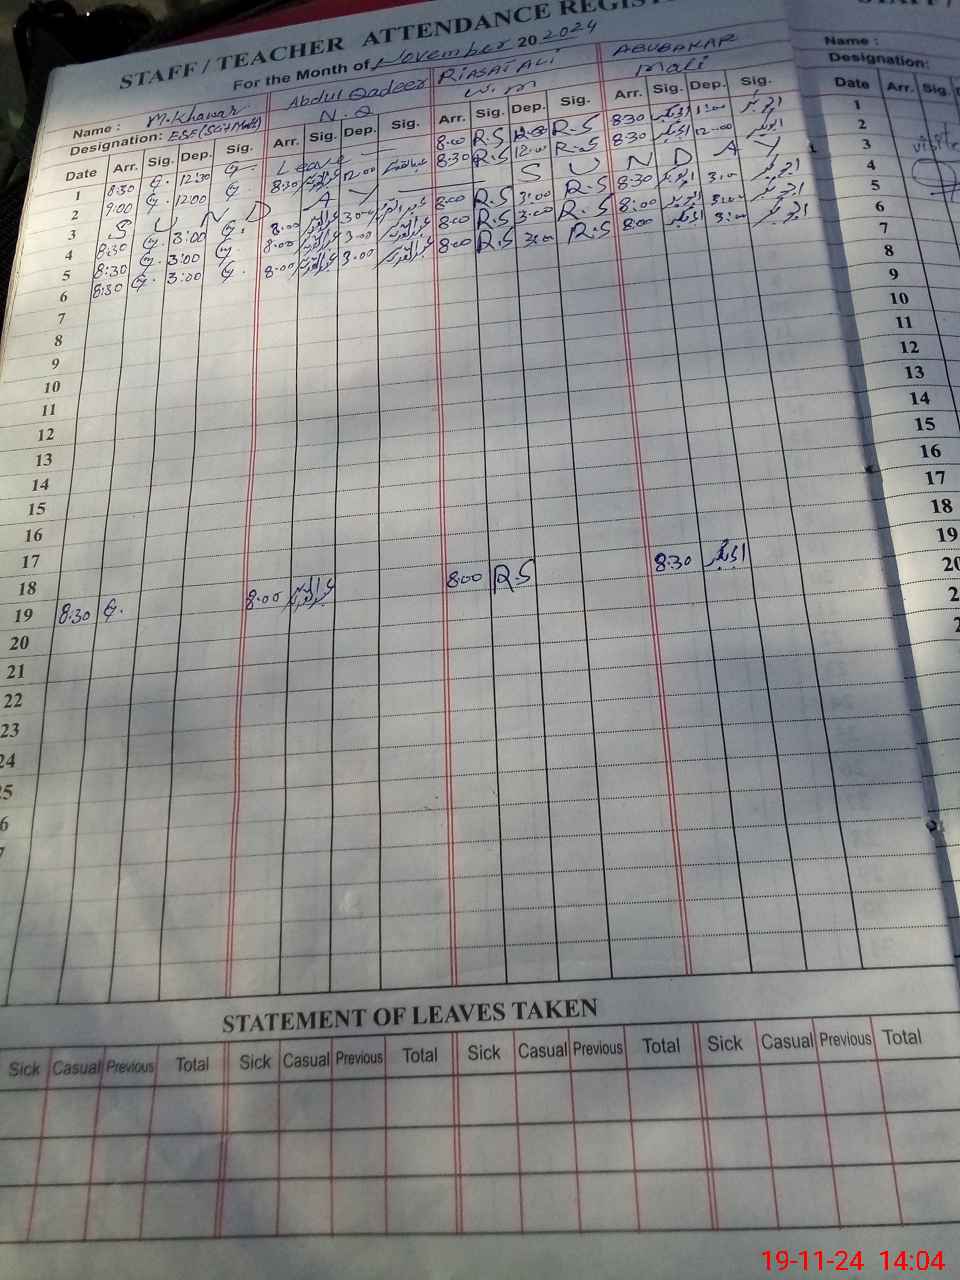 STAFF / TEACHER ATTENDANCE REGIST
For the Month of November 20 2024
Name : M.Khawar Abdul Qadeer RIASAT ALI ABUBAKAR
Designation: ESE(Sci+Math) N.Q W.m mali
Date Arr. Sig. Dep. Sig. Arr. Sig. Dep. Sig. Arr. Sig. Dep. Sig. Arr. Sig. Dep. Sig.
1 8:30 G. 12:30 G. Leave 8:00 R.S R.S 8:30 ابوبکر ابوبکر
2 9:00 G. 12:00 G. 8:30 عبدالقدیر 12:00 8:30 R.S 12:00 R.S 8:30 ابوبکر 12:00 ابوبکر
3 S U N D A Y S U N D A Y
4 8:30 G. 3:00 G. 8:00 عبدالقدیر 3:00 عبدالقدیر 8:00 R.S 3:00 R.S 8:30 ابوبکر 3:00 ابوبکر
5 8:30 G. 3:00 G. 8:00 عبدالقدیر 3:00 عبدالقدیر 8:00 R.S 3:00 R.S 8:00 ابوبکر 3:00 ابوبکر
6 8:30 G. 3:00 G. 8:00 عبدالقدیر 3:00 عبدالقدیر 8:00 R.S 3:00 R.S 8:00 ابوبکر 3:00 ابوبکر
7
8
9
10
11
12
13
14
15
16
17
18
19 8:30 G. 8:00 عبدالقدیر 8:00 R.S 8:30 ابوبکر
20
21
22
23
24
25
6
7
STATEMENT OF LEAVES TAKEN
Sick Casual Previous Total Sick Casual Previous Total Sick Casual Previous Total Sick Casual Previous Total
STAFF /
Name :
Designation:
Date Arr. Sig.
1
2
3
4
5
6
7
8
9
10
11
12
13
14
15
16
17
18
19
20
2
2
19-11-24 14:04